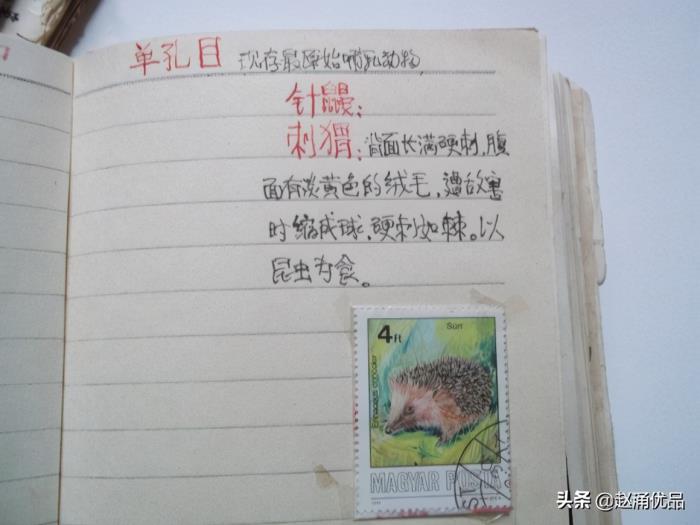 单孔目 现存最原始哺乳动物
针鼹:
刺猬: 背面长满硬刺,腹
面有淡黄色的绒毛,遭敌害
时缩成球,硬刺如棘。以
昆虫为食。
4Ft
Sün
Erinaceus concolor
MAGYAR POSTA
头条 @赵痛优品